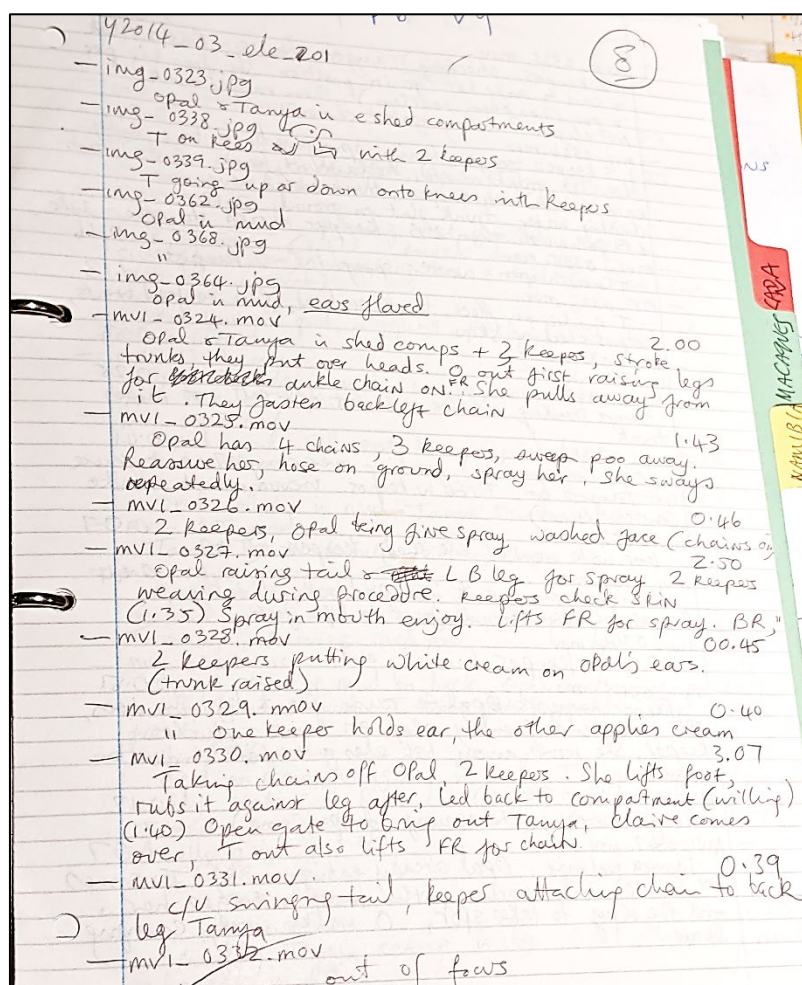 y2014_03_ele_201
8
— img_0323.jpg
Opal & Tanya in e shed compartments
— img_0338.jpg
T on kees with 2 keepers
— img_0339.jpg
T going up or down onto knees with keepers
— img_0362.jpg
Opal in mud
— img_0368.jpg
"
— img_0364.jpg
Opal in mud, ears flared
— mvi_0324.mov 2.00
Opal & Tanya in shed comps + 3 keepers, stroke
trunks, they put over heads. O out first raising legs
for ankle chain on. FR She pulls away from
it. They fasten back left chain
— mvi_0325.mov 1.43
Opal has 4 chains, 3 keepers, sweep poo away.
Reassure her, hose on ground, spray her, she sways
repeatedly.
— mvi_0326.mov 0.46
2 keepers, Opal being give spray washed face (chains on)
— mvi_0327.mov 2.50
Opal raising tail & L B leg for spray 2 keepers
weaving during procedure. Keepers check skin
(1.35) Spray in mouth enjoy. Lifts FR for spray. BR, "
— mvi_0328.mov 00.45
2 keepers putting white cream on Opal's ears.
(trunk raised)
— mvi_0329.mov 0.40
" One keeper holds ear, the other applies cream
— mvi_0330.mov 3.07
Taking chains off Opal, 2 keepers. She lifts foot,
rubs it against leg after, led back to compartment (willing)
(1.40) Open gate to bring out Tanya, Claire comes
over, T out also lifts FR for chain.
— mvi_0331.mov. 0.39
c/u swinging tail, keeper attaching chain to back
leg Tanya
— mvi_0332.mov
out of focus
NS
MACAQUES
NAMIBIA